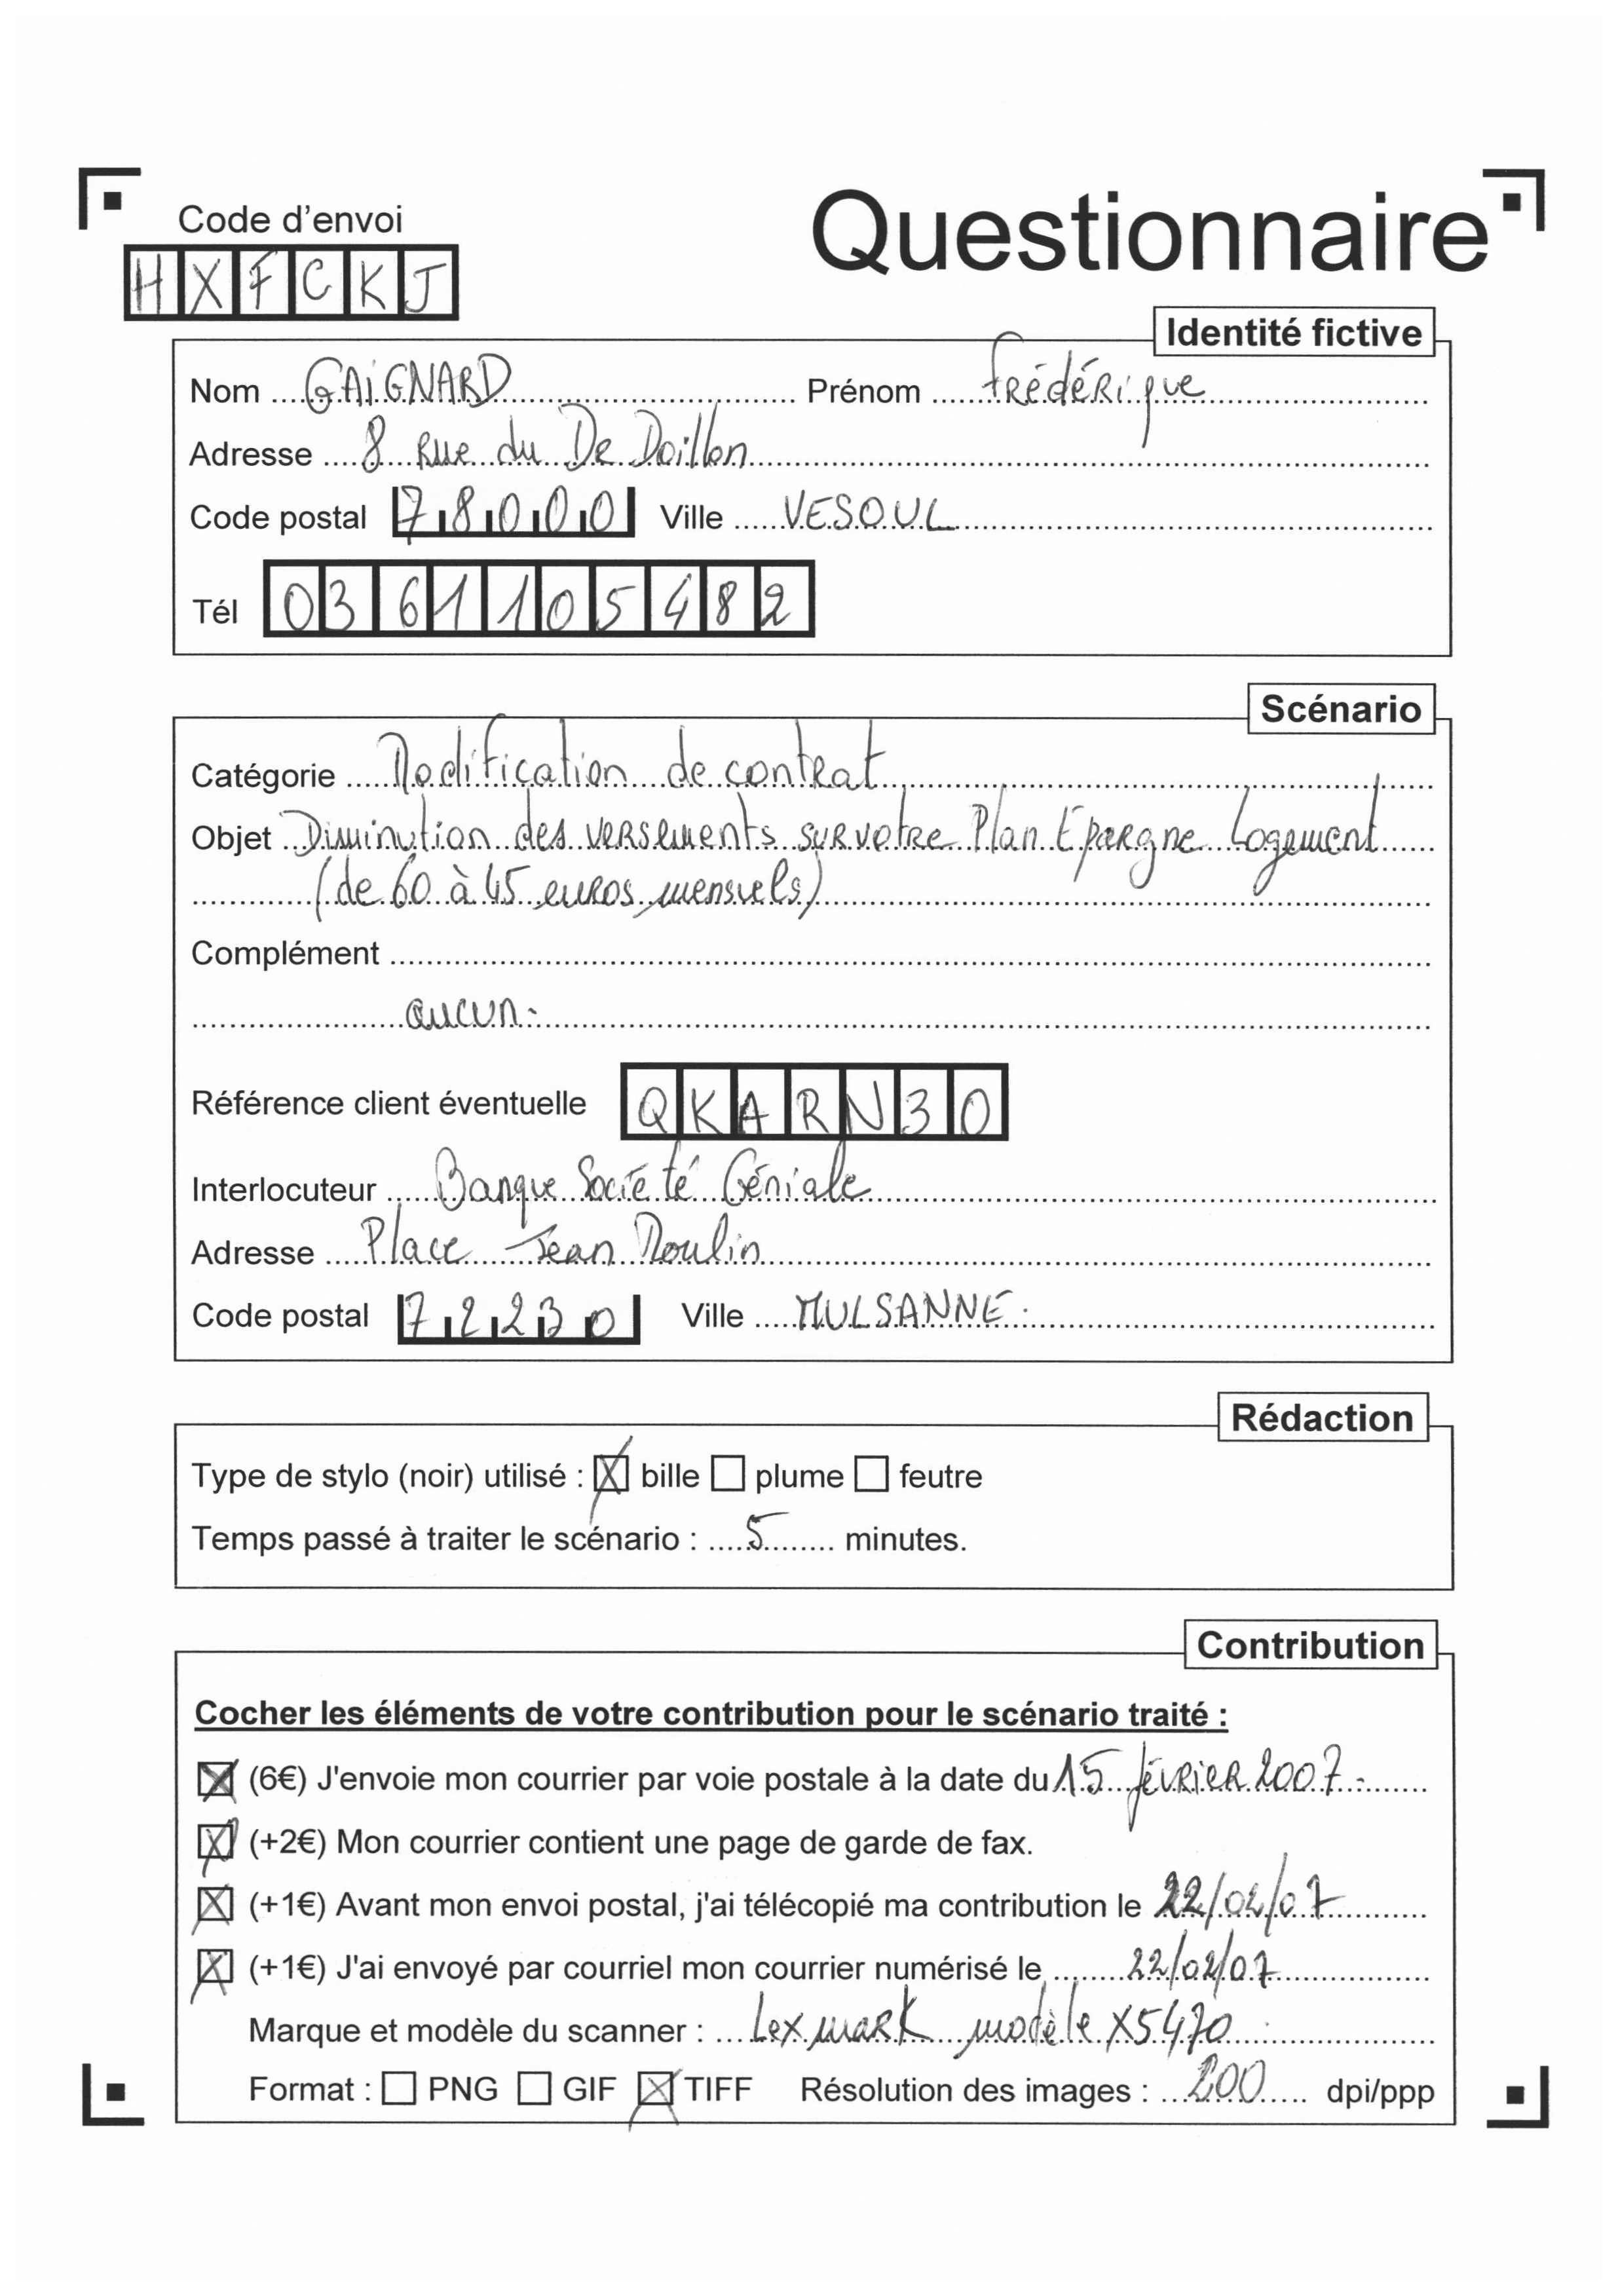 Code d'envoi
Questionnaire
HXFCKJ
Identité fictive
Nom GAIGNARD Prénom Frédérique
Adresse 8 Rue du De Doillon
Code postal 78000 Ville VESOUL
Tél 0361105482
Scénario
Catégorie Modification de contrat
Objet Diminution des versements sur votre Plan Epargne Logement
(de 60 à 45 euros mensuels)
Complément
aucun.
Référence client éventuelle QKARN30
Interlocuteur Banque Société Géniale
Adresse Place Jean Moulin
Code postal 72230 Ville MULSANNE.
Rédaction
Type de stylo (noir) utilisé : ☒ bille ☐ plume ☐ feutre
Temps passé à traiter le scénario : 5 minutes.
Contribution
Cocher les éléments de votre contribution pour le scénario traité :
☒ (6€) J'envoie mon courrier par voie postale à la date du 15 février 2007.
☒ (+2€) Mon courrier contient une page de garde de fax.
☒ (+1€) Avant mon envoi postal, j'ai télécopié ma contribution le 22/02/07
☒ (+1€) J'ai envoyé par courriel mon courrier numérisé le 22/02/07
Marque et modèle du scanner : Lexmark modèle X5470
Format : ☐ PNG ☐ GIF ☒ TIFF Résolution des images : 200 dpi/ppp